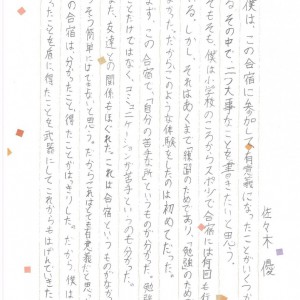 佐々木 優
僕は、この合宿に参加して有意義になったことがいくつか
る。その中で、二つ大事なことを書きたいと思う。
そもそも、僕は小学校のころからスポーツで合宿には何回も行
る。しかし、それはあくまで「強図のためであり、「勉強のため
まった。だから、このような体験をしたのは初めてだった。
ます、この合宿で、「自分の苦手な所」というものも分かった。勉強
ことだけではなく、コミュニケーションが苦手というのも分かった。
また、友達との関係もほぐれた。これは合宿というものがなか
そう簡単にはできないと思う。だからせれはとても有意義だと思っ
この合宿は、分かったこと、得たことがはっきりした。だから、僕は
ったことを盾に得たことを武器にしてこれからもはげんでいきた